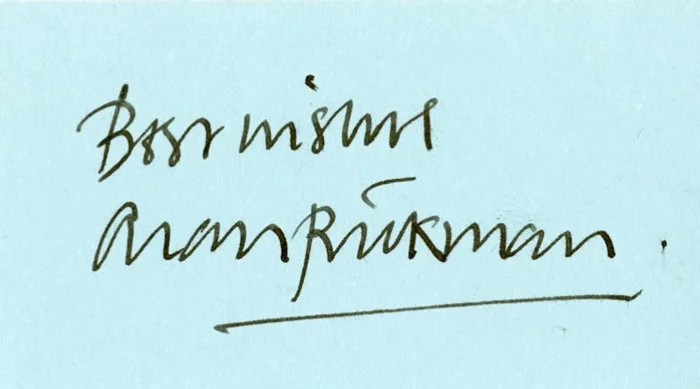 Best wishes
Alan Rickman